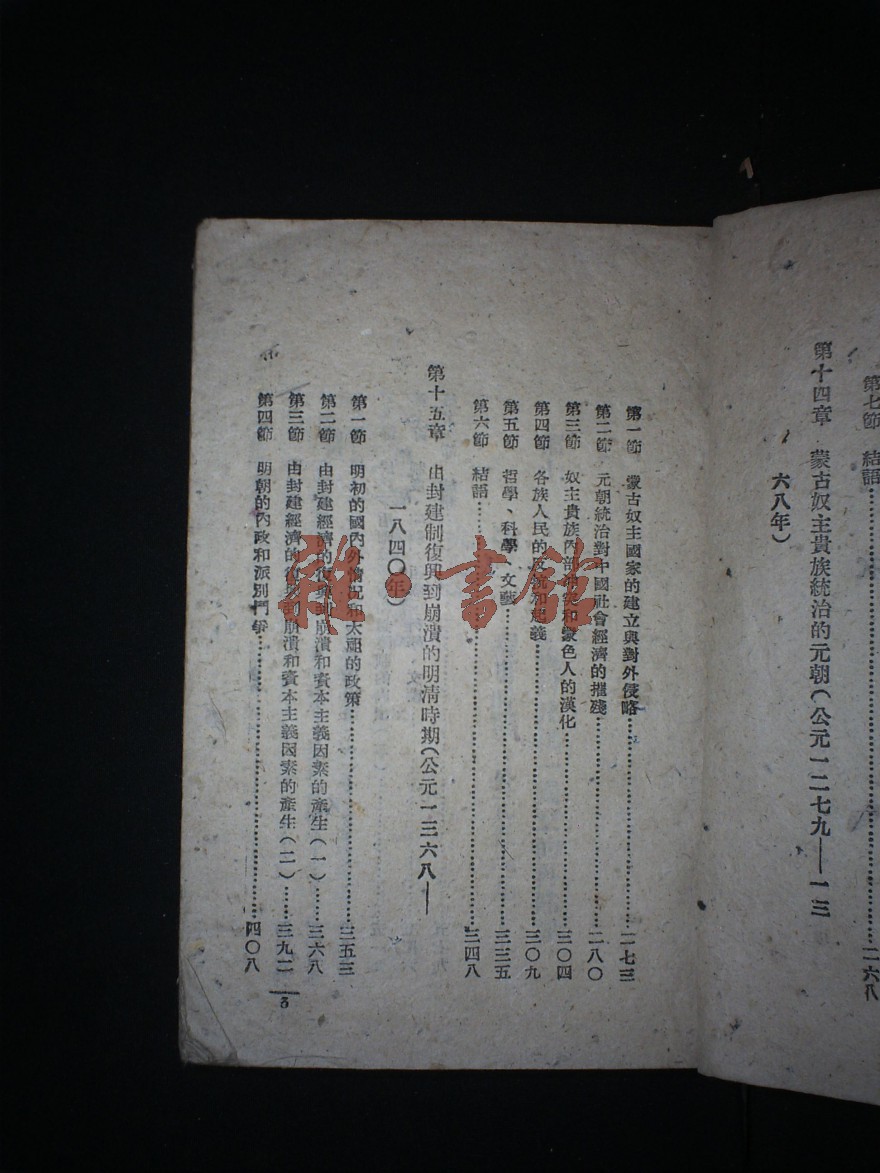 第七節 結語……二六八
第十四章 蒙古奴主貴族統治的元朝(公元一二七九——一三
六八年)
第一節 蒙古奴主國家的建立與對外侵略……二七三
第二節 元朝統治對中國社會經濟的摧殘……二八〇
第三節 奴主貴族內部 和 色人的漢化……三〇四
第四節 各族人民的反抗和起義……三〇九
第五節 哲學、科學、文藝……三三五
第六節 結語……三四八
第十五章 由封建制復興到崩潰的明清時期(公元一三六八——
一八四〇年)
第一節 明初的國內外情况和太祖的政策……三五三
第二節 由封建經濟的復興到崩潰和資本主義因素的產生(一)……三六八
第三節 由封建經濟的復興到崩潰和資本主義因素的產生(二)……三九二
第四節 明朝的內政和派別鬥爭……四〇八
3
雜·書館